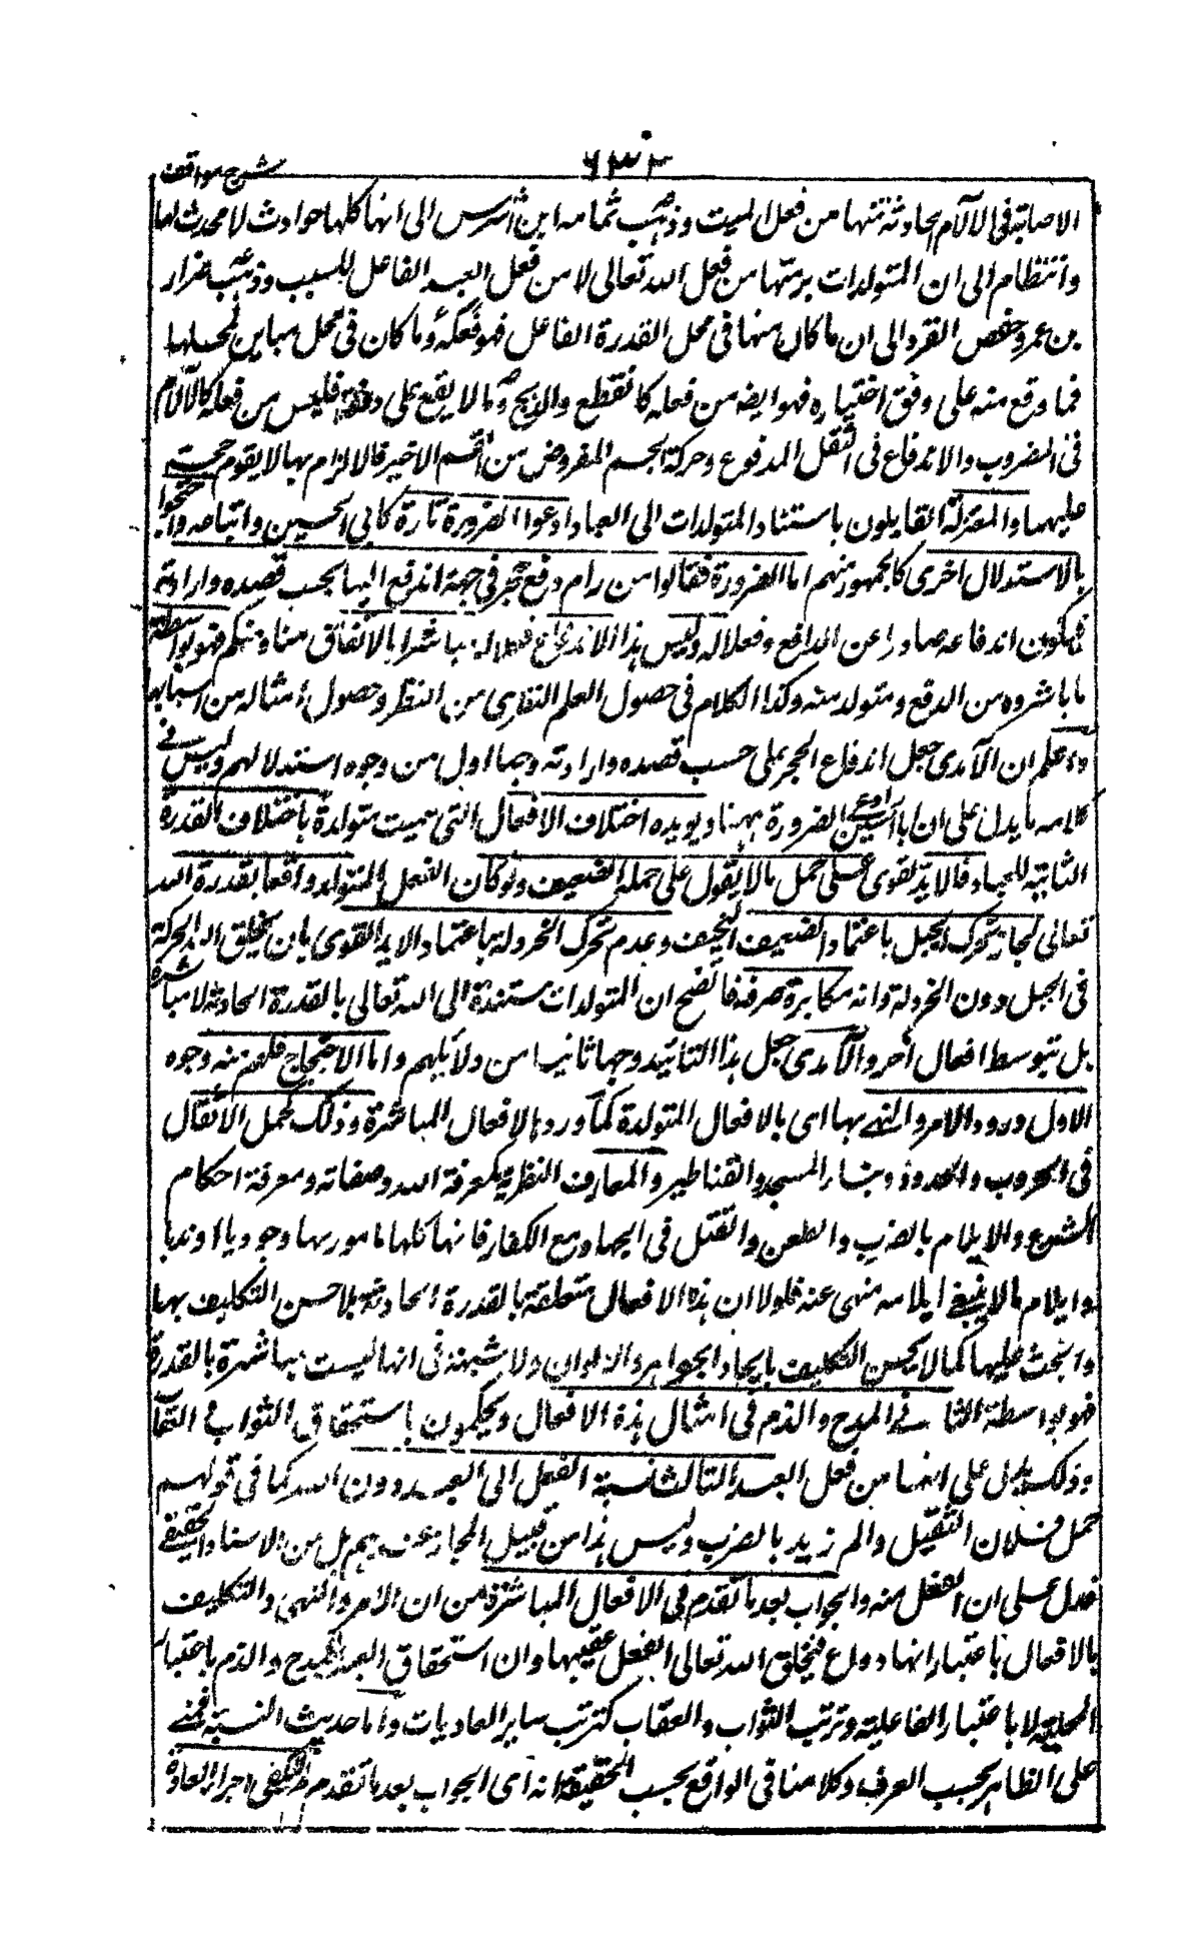 ٦٣٢
شرح مواقف
الاصابة فى الالآم الحادثة منها من فعل الميت وذهب ثمامه ابن اشرس الى انها كلها حوادث لا محدث لها
والنظام الى ان المتولدات برمتها من فعل الله تعالى لا من فعل العبد الفاعل للسبب وذهب ضرار
بن عمرو حفص الفرد الى ان ما كان منها فى محل القدرة الفاعل فهو فعله وما كان فى محل مباين لمحلها
فما وقع منه على وفق اختياره فهو ايضه من فعله كالقطع والذبح وما لا يقع على وفقه فليس من فعله كالآلام
فى المضروب والاندفاع فى الثقل المدفوع وحركة الجسم المفروض من القسم الاخير فالالزام بها لا يقوم حجة
عليهما والمعتزلة القايلون باستناد المتولدات الى العباد ادعوا الضرورة تارة كابى الحسين واتباعه واحتجوا
بالاستدلال اخرى كالجمهور منهم اما الضرورة فقالوا من رام دفع حجر فى جهة اندفع اليها بحسب قصده وارادته
فيكون اندفاعه صادرا عن الدافع وفعلا له وليس هذا الاندفاع فعلا له مباشرا بالاتفاق منا ومنكم فهو بواسطة
ما باشروه من الدفع ومتولد منه وكذا الكلام فى حصول العلم النظرى من النظر وحصول امثاله من اسبابها
واعلم ان الآمدى جعل اندفاع الحجر على حسب قصده وارادته وجها اول من وجوه استدلالهم وليس فى
كلامه ما يدل على ان ابا الحسين ادعى الضرورة ههنا ويويده اختلاف الافعال التى سميت متولدة باختلاف القدرة
الثابتة للعباد فالايد القوى على حمل ما لا يقوى على حمله الضعيف ولو كان الفعل المتولد واقعا بقدرة الله
تعالى لجاز تحرك الجبل باعتماد الضعيف النحيف وعدم تحرك الخردلة باعتماد الايد القوى بان يخلق الله الحركة
فى الجبل دون الخردلة وانه مكابرة صرفه فاتضح ان المتولدات مستندة الى الله تعالى بالقدرة الحادثة لا مباشرة
بل بتوسط افعال اخر والآمدى جعل هذا التائيد وجها ثانيا من دلائلهم واما الاحتجاج فلهم منه وجوه
الاول ورود الامر والنهى بها اى بالافعال المتولدة كما ورد بالافعال المباشرة وذلك كحمل الاثقال
فى الحروب والحدود وبناء المسجد والقناطير والمعارف النظرية كمعرفة الله وصفاته ومعرفة احكام
الشرع والايلام بالضرب والطعن والقتل فى الجهاد مع الكفار فانها كلها مامور بها وجوبا او ندبا
وايلام ما لا ينبغى ايلامه منهى عنه فلولا ان هذه الافعال متعلقة بالقدرة الحادثة لما حسن التكليف بها
والحث عليها كما لا يحسن التكليف بايجاد الجواهر والالوان ولا شبهة فى انها ليست مباشرة بالقدرة
فهو بواسطة الثانى المدح والذم فى امثال هذه الافعال ويحكمون باستحقاق الثواب و العقاب
وذلك يدل على انها من فعل العبد الثالث نسبة الفعل الى العبد دون الله كما فى قولهم
حمل فلان الثقيل والم زيد بالضرب وليس هذا من قبيل المجاز عندهم بل من الاسناد الحقيقى
فدل على ان الفعل منه والجواب بعد ما تقدم فى الافعال المباشرة من ان الامر والنهى والتكليف
بالافعال باعتبار انها دواع فيخلق الله تعالى الفعل عقيبها وان استحقاق العبد المدح والذم باعتبار
المحلية لا باعتبار الفاعلية وترتب الثواب والعقاب كترتب ساير العاديات واما حديث النسبة فمبنى
على الظاهر بحسب العرف وكلامنا فى الواقع بحسب الحقيقة انه اى الجواب بعد ما تقدم يكفى اجراء العادة